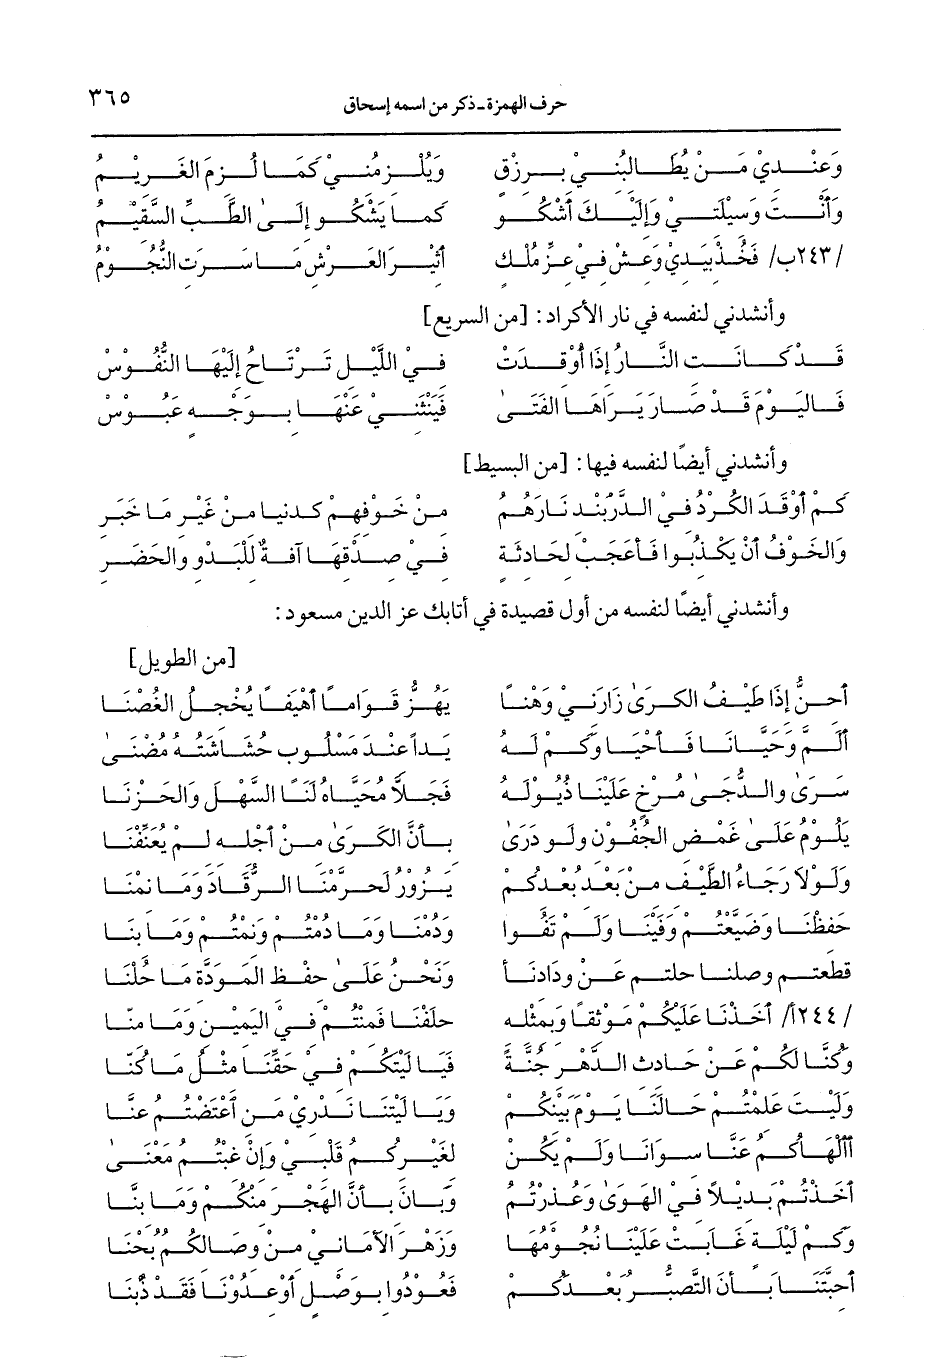 حرف الهمزة ـ ذكر من اسمه إسحاق ٣٦٥
وَعِنْدِيْ مَنْ يُطَالِبُنِيْ بِرِزْقٍ وَيَلْزَمُنِيْ كَمَا لَزِمَ الغَرِيْمُ
وَأَنْتَ وَسِيْلَتِيْ وَإِلَيْكَ أَشْكُو كَمَا يَشْكُو إِلَىٰ الطَّبِّ السَّقِيْمُ
/٢٤٣ب/ فَخُذْ بِيَدِيْ وَعِشْ فِي عِزِّ مُلْكٍ أَثِيْرَ العَرْشِ مَا سَرَتِ النُّجُوْمُ
وأنشدني لنفسه في نار الأكراد: [من السريع]
قَدْ كَانَتِ النَّارُ إِذَا أُوْقِدَتْ فِيْ اللَّيْلِ تَرْتَاحُ إِلَيْهَا النُّفُوْسْ
فَاليَوْمَ قَدْ صَارَ يَرَاهَا الفَتَىٰ فَيَنْثَنِيْ عَنْهَا بِوَجْهٍ عَبُوْسْ
وأنشدني أيضًا لنفسه فيها: [من البسيط]
كَمْ أَوْقَدَ الكُرْدُ فِيْ الدَّرْبَنْدِ نَارَهُمُ مِنْ خَوْفِهِمْ كَدُنيا مِنْ غَيْرِ مَا خَبَرِ
وَالخَوْفُ أَنْ يَكْذِبُوا فَأَعْجَبْ لِحَادِثَةٍ فِيْ صِدْقِهَا آفَةٌ لِلْبَدْوِ وَالحَضَرِ
وأنشدني أيضًا لنفسه من أول قصيدة في أتابك عز الدين مسعود:
[من الطويل]
أَحِنُّ إِذَا طَيْفُ الكَرَىٰ زَارَنِيْ وَهْنًا يَهُزُّ قَوَامًا أَهْيَفًا يُخْجِلُ الغُصْنَا
أَلَمَّ وَحَيَّانَا فَأَحْيَا وَكَمْ لَهُ يَدًا عِنْدَ مَسْلُوبٍ حُشَاشَتُهُ مُضْنَىٰ
سَرَىٰ وَالدُّجَىٰ مُرْخٍ عَلَيْنَا ذُيُولَهُ فَجَلَّا مُحَيَّاهُ لَنَا السَّهْلَ وَالحَزْنَا
يَلُوْمُ عَلَىٰ غَمْضِ الجُفُوْنِ وَلَو دَرَىٰ بِأَنَّ الكَرَىٰ مِنْ أَجْلِهِ لَمْ يُعَنِّفْنَا
وَلَوْلَا رَجَاءُ الطَّيْفِ مِنْ بَعْدِ بُعْدِكُمْ يَزُورُ لَحَرَّمْنَا الرُّقَادَ وَمَا نِمْنَا
حَفِظْنَا وَضَيَّعْتُمْ وَفَيْنَا وَلَمْ تَفُوا وَدُمْنَا وَمَا دُمْتُمْ وَنِمْتُمْ وَمَا نِمْنَا
قطعتم وصلنا حلتم عَنْ ودَادنَا وَنَحْنُ عَلَىٰ حِفْظِ المَوَدَّةِ مَا حُلْنَا
/٢٤٤أ/ أَخَذْنَا عَلَيْكُمْ مَوْثِقًا وَبِمِثْلِهِ حَلَفْنَا فَمِنْتُمْ فِيْ اليَمِيْنِ وَمَا مِنَّا
وَكُنَّا لَكُمْ عَنْ حَادِثِ الدَّهْرِ جُنَّةً فَيَا لَيْتَكُمْ فِيْ حَقِّنَا مِثْلَ مَا كُنَّا
وَلَيْتَ عَلِمْتُمْ حَالَنَا يَوْمَ بَيْنِكُمْ وَيَا لَيْتَنَا نَدْرِيْ مَنِ اعْتَضْتُمُ عَنَّا
أَأَلْهَاكُمُ عَنَّا سِوَانَا وَلَمْ يَكُنْ لِغَيْرِكُمْ قَلْبِيْ وَإِنْ غِبْتُمُ مَغْنَىٰ
أَخَذْتُمْ بَدِيْلًا فِيْ الهَوَىٰ وَغَدَرْتُمُ وَبَانَ بِأَنَّ الهَجْرَ مِنْكُمْ وَمَا بِنَّا
وَكَمْ لَيْلَةٍ غَابَتْ عَلَيْنَا نُجُوْمُهَا وَزَهْرَ الأَمَانِيْ مِنْ وِصَالِكُمُ يُجْنَىٰ
أَحِبَّتَنَا بَانَ التَّصَبُّرُ بَعْدَكُمْ فَعُودُوا بِوَصْلٍ أَوْعِدُوْنَا فَقَدْ ذُبْنَا